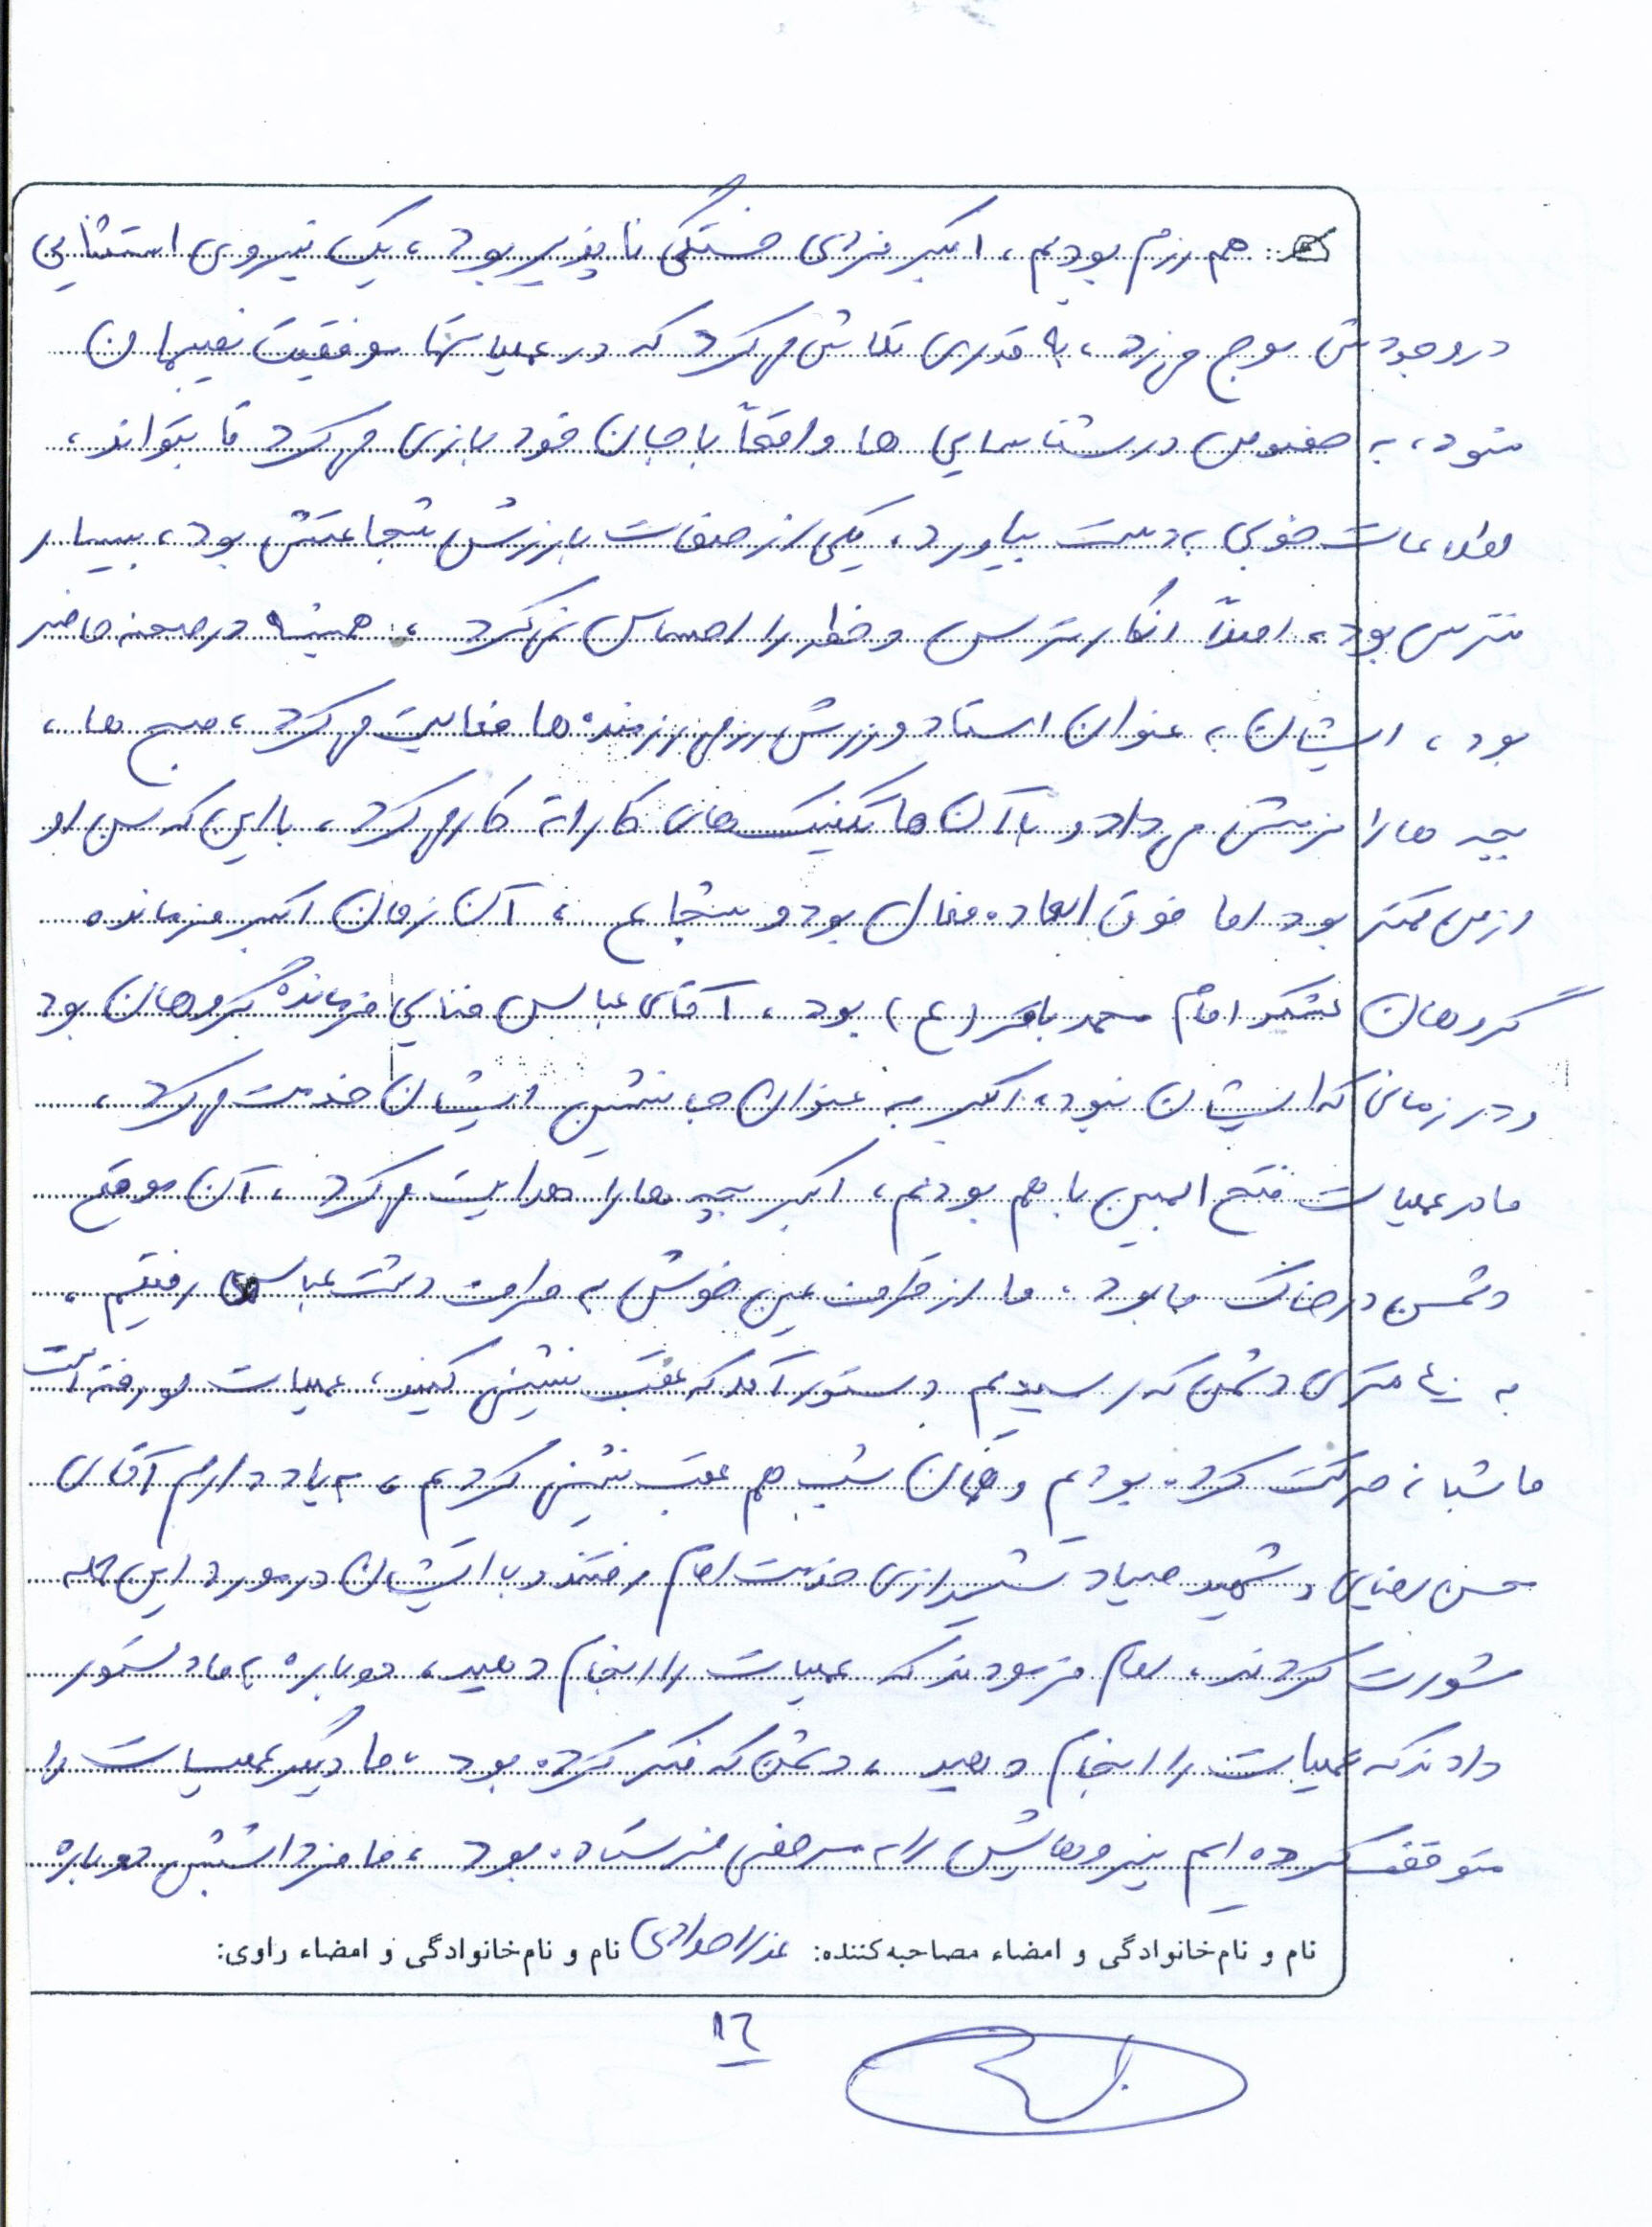 هم رزم بودیم، اکبر فردی خستگی ناپذیر بود، یک نیروی استثنایی
در وجودش موج می زد، به قدری تلاش می کرد که در عملیاتها موفقیت نصیبمان
شود، به خصوص در شناسایی ها واقعاً با جان خود بازی می کرد تا بتواند،
اطلاعات خوبی به دست بیاورد، یکی از صفات بارزش شجاعتش بود، بسیار
نترس بود، اصلاً انگار ترس و خطر را احساس نمی کرد، همیشه در صحنه حاضر
بود، ایشان به عنوان استاد ورزش رزمی رزمنده ها فعالیت می کرد، صبح ها،
بچه ها را نرمش می داد و با آن ها تکنیک های کاراته کار می کرد، با این که سن او
از من کمتر بود اما فوق العاده فعال بود و شجاع، آن زمان اکبر فرمانده
گروهان لشکر امام محمد باقر (ع) بود، آقای عباس فنایی فرمانده گروهان بود
و در زمانی که ایشان نبود، اکبر به عنوان جانشین ایشان خدمت می کرد،
ما در عملیات فتح المبین با هم بودیم، اکبر بچه ها را هدایت می کرد، آن موقع
دشمن در خاک ما بود، ما از طرف عین خوش به طرف دشت عباس رفتیم،
به متری دشمن که رسیدیم دستور آمد که عقب نشینی کنید، عملیات لو رفته است
ما شبانه حرکت کرده بودیم و همان شب هم عقب نشینی کردیم، به یاد دارم آقای
محسن رضایی و شهید صیاد شیرازی خدمت امام رفتند و با ایشان در مورد این حمله
مشورت کردند، امام فرمودند که عملیات را انجام دهید، دوباره به ما دستور
دادند که عملیات را انجام دهید، دشمن که فکر کرده بود، ما دیگر عملیات را
متوقف کرده ایم نیروهایش را به مرخصی فرستاده بود، ما فردا شبش دوباره
نام و نام خانوادگی و امضاء مصاحبه کننده: عذرا مرادی نام و نام خانوادگی و امضاء راوی:
۱۶